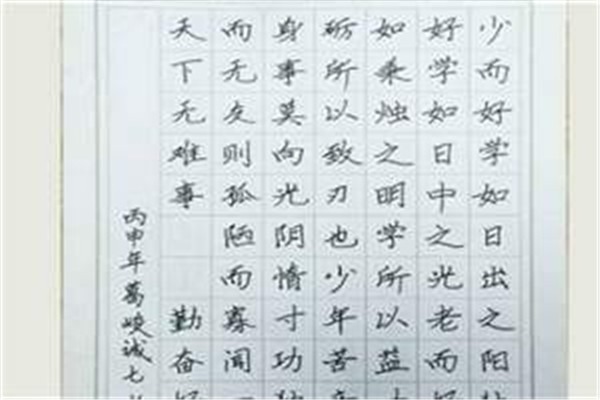 少而好学如日出之阳
好学如日中之光老而
如秉烛之明学所以益
砺所以致刃也少年苦
身事莫向光阴惰寸功
而无友则孤陋而寡闻
天下无难事 勤奋
丙申年葛峻诚七